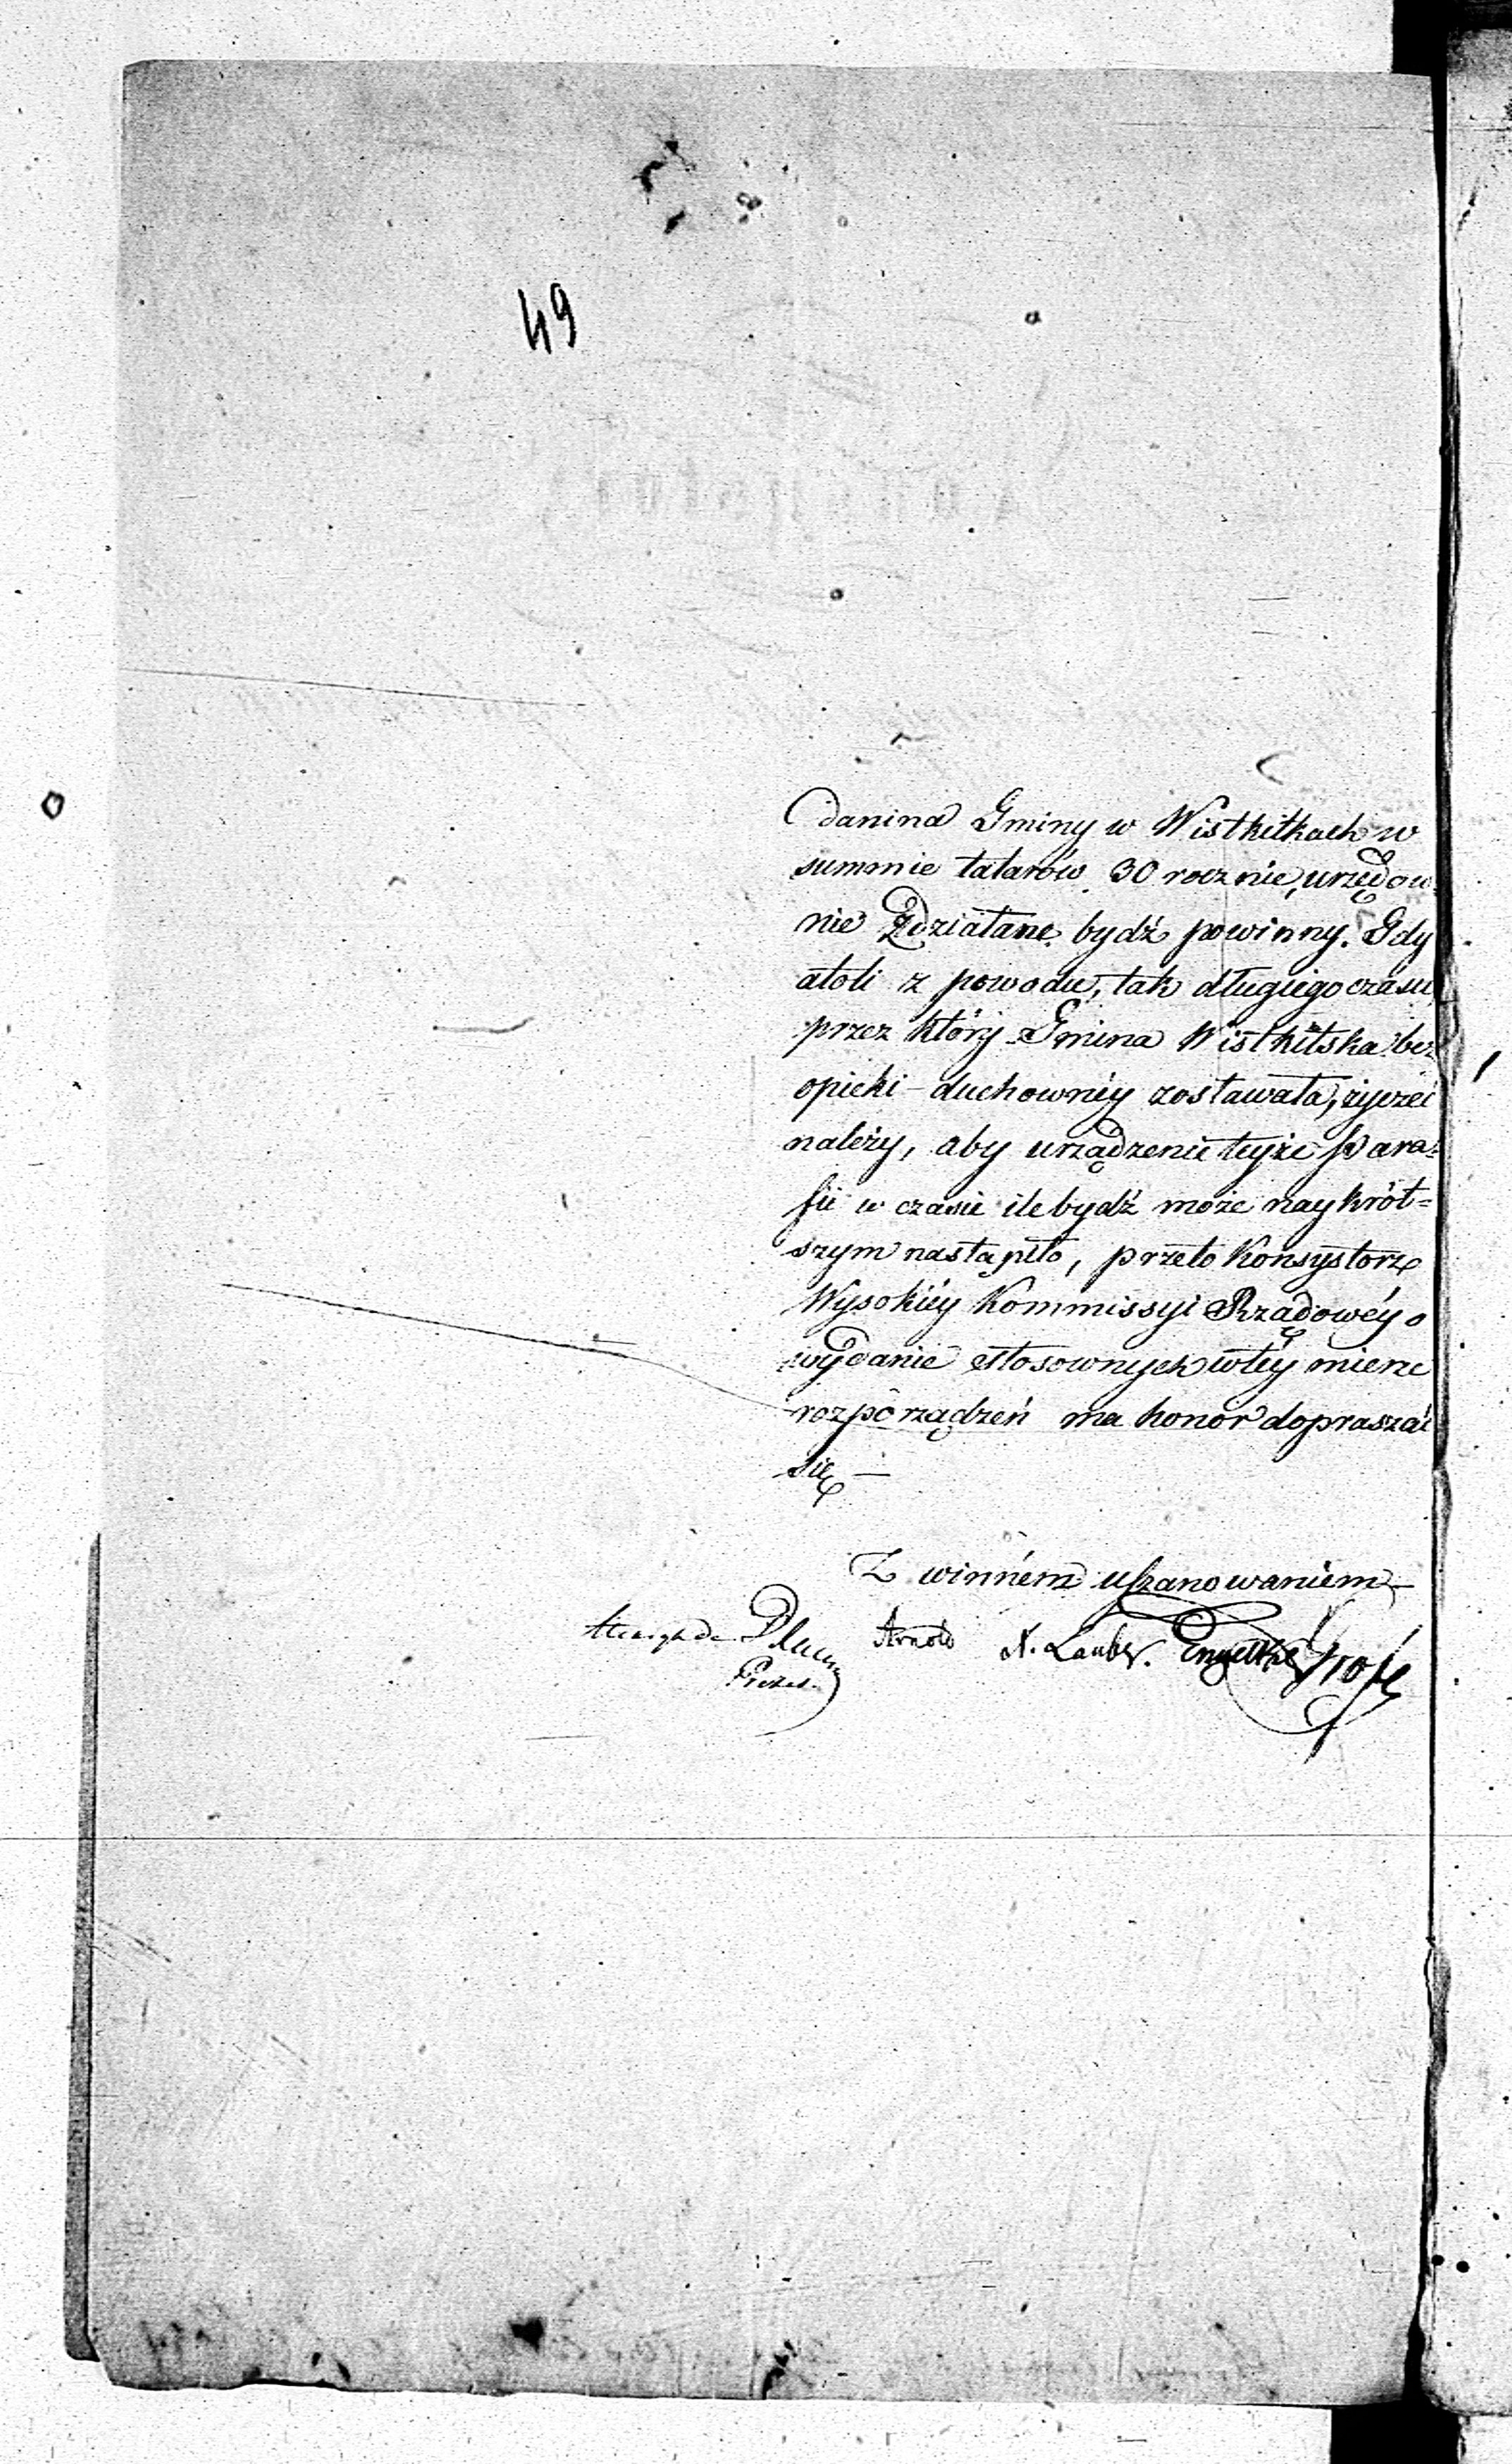 49
danina Gminy w Wistkitkach w
summie talarów 30 rocznie, urzędow
nie zdziałane bydź powinny. Gdy
atoli z powodu, tak długiego czasu
przez który Gmina Wistkitska bez
opieki duchownéy zostawała, życzeć
należy, aby urządzenie teyże Para=
fii w czasie ile bydź może naykrót=
szym nastąpiło, przeto Konsystorz
Wysokiéy Kommissyi Rządowéy o
wydanie stosownych w téy mierze
rozporządzeń ma honor dopraszać
się —
Z winném uszanowaniem
Prezes. Arnold Engelke